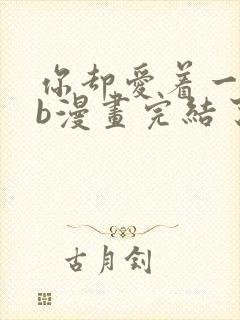 你却愛着一
b漫畫完結
古月剑